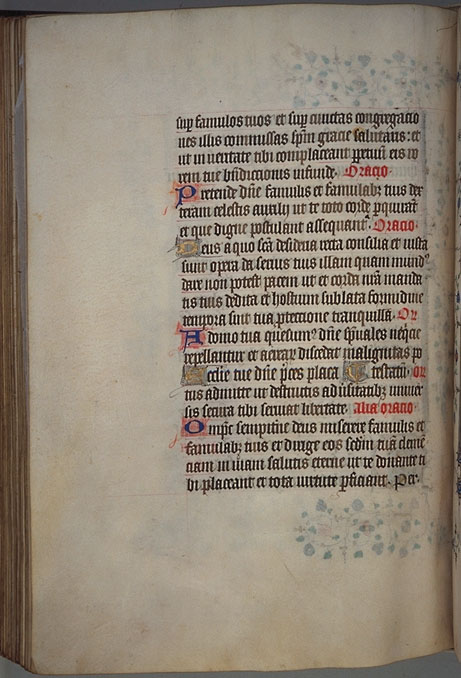 sup famulos tuos et sup cunctas congregacio
nes illis commissas spm gracie salutaris: et
ut in veritate tibi complaceant perpetuu eis ro
rem tue bndiccionis infunde. Oracio.
Pretende dne famulis et famulabz tuis dex
teram celestis auxilij ut te toto corde pquirat
et que digne postulant assequant. Oracio.
Deus a quo sca desideria recta consilia et iusta
sunt opera da seruis tuis illam quam mund9
dare non potest pacem ut et corda nra manda
tis tuis dedita et hostium sublata formidine
tempora sint tua pteccione tranquilla. Or
A domo tua quesum9 dne spuales neqcie
repellantur et aeriar discedat malignitas po
Ecclie tue dne pces placa testatu. or
tus admitte ut destructis aduersitatibz uniuer
sis secura tibi seruiat libertate. Alia oracio.
Omps sempitne deus miserere famulis et
famulabz tuis et dirige eos scdm tua cleme
ciam in uiam salutis eterne ut te donante ti
bi placeant et tota uirtute pficiant. Per.